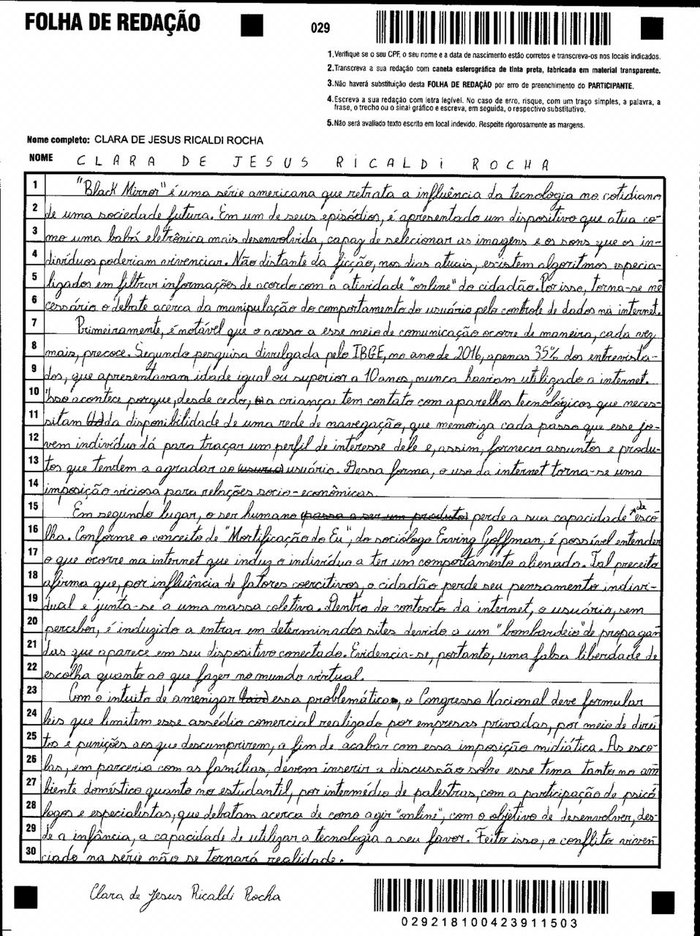 FOLHA DE REDAÇÃO
029
1. Verifique se o seu CPF, o seu nome e a data de nascimento estão corretos e transcreva-os nos locais indicados.
2. Transcreva a sua redação com caneta esferográfica de tinta preta, fabricada em material transparente.
3. Não haverá substituição desta FOLHA DE REDAÇÃO por erro de preenchimento do PARTICIPANTE.
4. Escreva a sua redação com letra legível. No caso de erro, risque, com um traço simples, a palavra, a
frase, o trecho ou o sinal gráfico e escreva, em seguida, o respectivo substitutivo.
5. Não será avaliado texto escrito em local indevido. Respeite rigorosamente as margens.
Nome completo: CLARA DE JESUS RICALDI ROCHA
NOME CLARA DE JESUS RICALDI ROCHA
1 "Black Mirror" é uma série americana que retrata a influência da tecnologia no cotidiano
2 de uma sociedade futura. Em um de seus episódios, é apresentado um dispositivo que atua co-
3 mo uma babá eletrônica mais desenvolvida, capaz de selecionar as imagens e os sons que os in-
4 divíduos poderiam vivenciar. Não distante da ficção, nos dias atuais, existem algoritmos especia-
5 lizados em filtrar informações de acordo com a atividade "online" do cidadão. Por isso, torna-se ne-
6 cessário o debate acerca da manipulação do comportamento do usuário pelo controle de dados na internet.
7 Primeiramente, é notável que o acesso a esse meio de comunicação ocorre de maneira, cada vez
8 mais, precoce. Segundo pesquisa divulgada pelo IBGE, no ano de 2016, apenas 35% dos entrevista-
9 dos, que apresentavam idade igual ou superior a 10 anos, nunca haviam utilizado a internet.
10 Isso acontece porque, desde cedo, a criança tem contato com aparelhos tecnológicos que neces-
11 sitam da disponibilidade de uma rede de navegação, que memoriza cada passo que esse jo-
12 vem indivíduo dá para traçar um perfil de interesse dele e, assim, fornecer assuntos e produ-
13 tos que tendem a agradar ao usuário. Dessa forma, o uso da internet torna-se uma
14 imposição viciosa para relações socio-econômicas.
15 Em segundo lugar, o ser humano passa a ser um produto perde a sua capacidade de esco-
16 lha. Conforme o conceito de "Mortificação do Eu", do sociólogo Erving Goffman, é possível entender
17 o que ocorre na internet que induz o indivíduo a ter um comportamento alienado. Tal preceito
18 afirma que, por influência de fatores coercitivos, o cidadão perde seu pensamento indivi-
19 dual e junta-se a uma massa coletiva. Dentro do contexto da internet, o usuário, sem
20 perceber, é induzido a entrar em determinados sites devido a um "bombardeio" de propagan-
21 das que aparece em seu dispositivo conectado. Evidencia-se, portanto, uma falsa liberdade de
22 escolha quanto ao que fazer no mundo virtual.
23 Com o intuito de amenizar essa problemática, o Congresso Nacional deve formular
24 leis que limitem esse assédio comercial realizado por empresas privadas, por meio de direi-
25 tos e punições aos que descumprirem, a fim de acabar com essa imposição midiática. As esco-
26 las, em parceria com as famílias, devem inserir a discussão sobre esse tema tanto no am-
27 biente doméstico quanto no estudantil, por intermédio de palestras, com a participação de psicó-
28 logos e especialistas, que debatam acerca de como agir "online", com o objetivo de desenvolver, des-
29 de a infância, a capacidade de utilizar a tecnologia a seu favor. Feito isso, o conflito viven-
30 ciado na série não se tornará realidade.
Clara de Jesus Ricaldi Rocha
029218100423911503